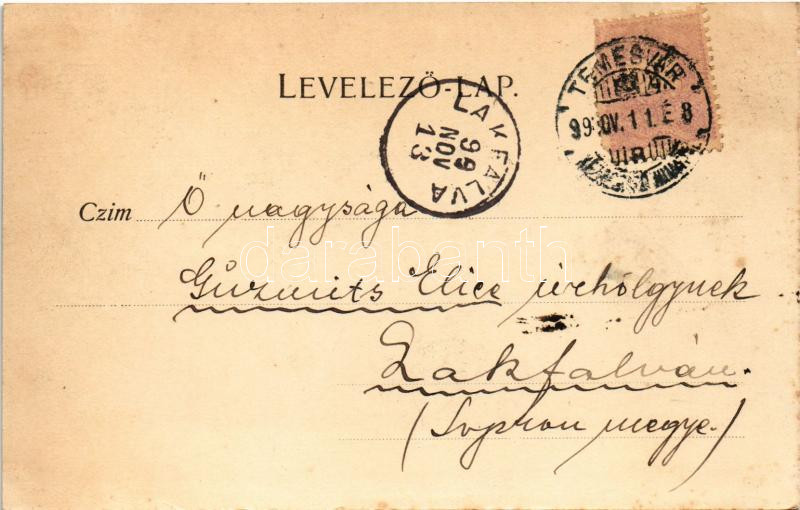 LEVELEZŐ-LAP.
TEMESVÁR
99 NOV. 11. É 8
LAKFALVA
99
NOV
13
Czim Ő nagysága
darabanth
Guzmits Elice úrhölgynek
Lakfalván.
(Sopron megye.)